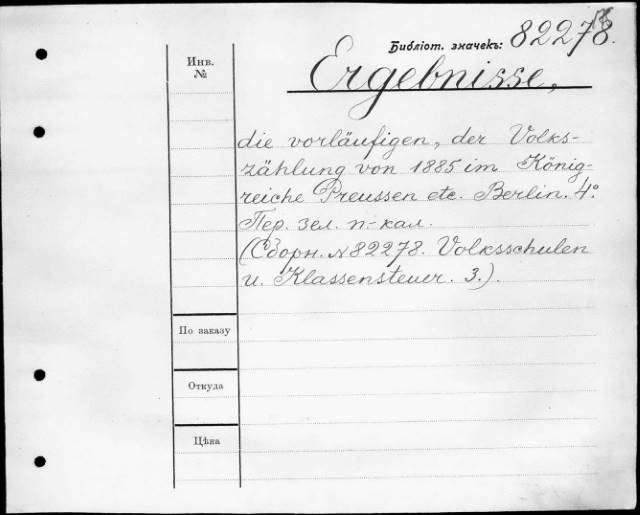 Библіот. значекъ: 82278.
Инв. №
Ergebnisse,
die vorläufigen, der Volks-
zählung von 1885 im König-
reiche Preussen etc. Berlin. 4°.
Пер. зел. п-кал.
(Сборн. № 82278. Volksschulen
u. Klassensteuer. 3.).
По заказу
Откуда
Цѣна